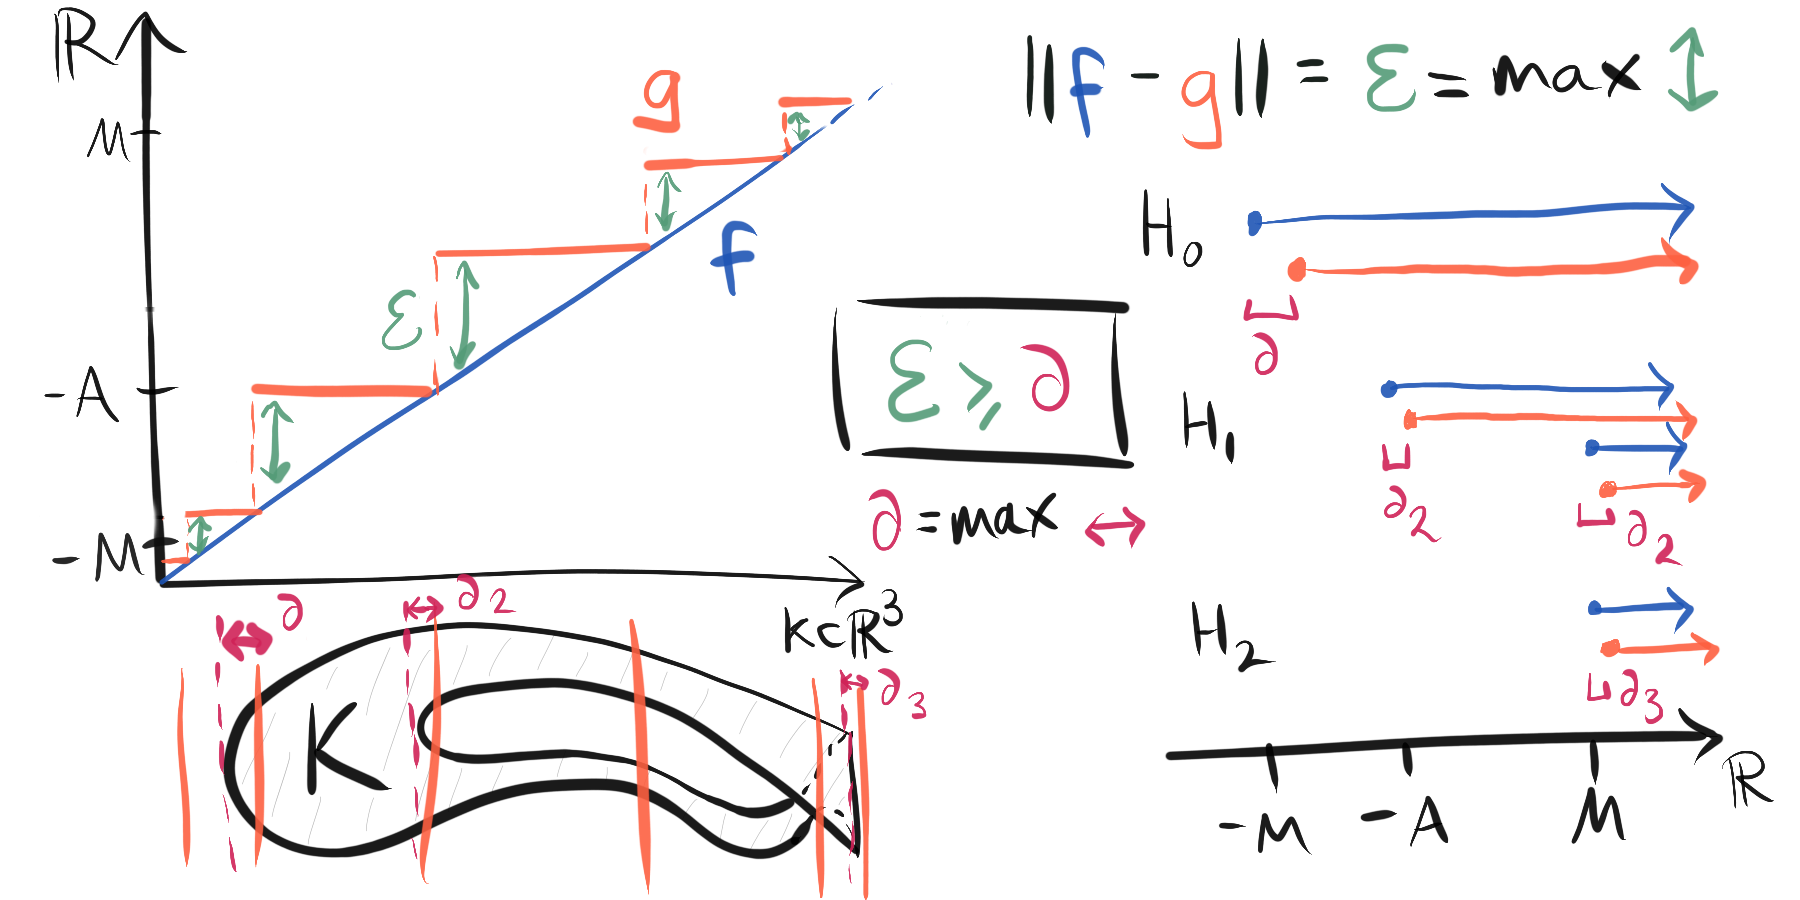 ℝ
M
-A
-M
g
f
ε
K⊂ℝ³
∂
∂₂
∂₃
K
||f - g|| = ε = max ↕
ε ⩾ ∂
∂ = max ↔
H₀
∂
H₁
∂₂
∂₂
H₂
∂₃
-M
-A
M
ℝ